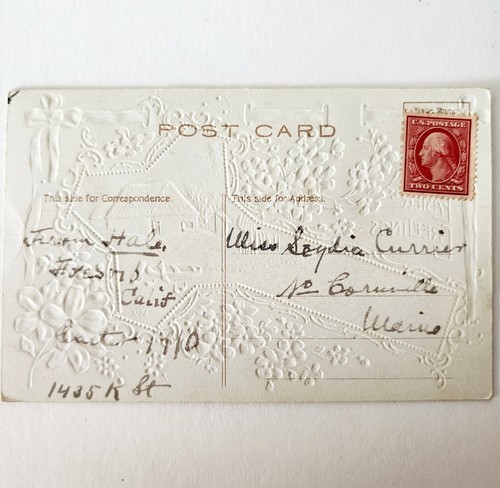 POST CARD
U.S. POSTAGE
TWO CENTS
This side for Correspondence.
This side for Address.
From Hale,
Fresno
Calif
1910
1435 K St
Miss Lydia Currier
No Cornville
Maine